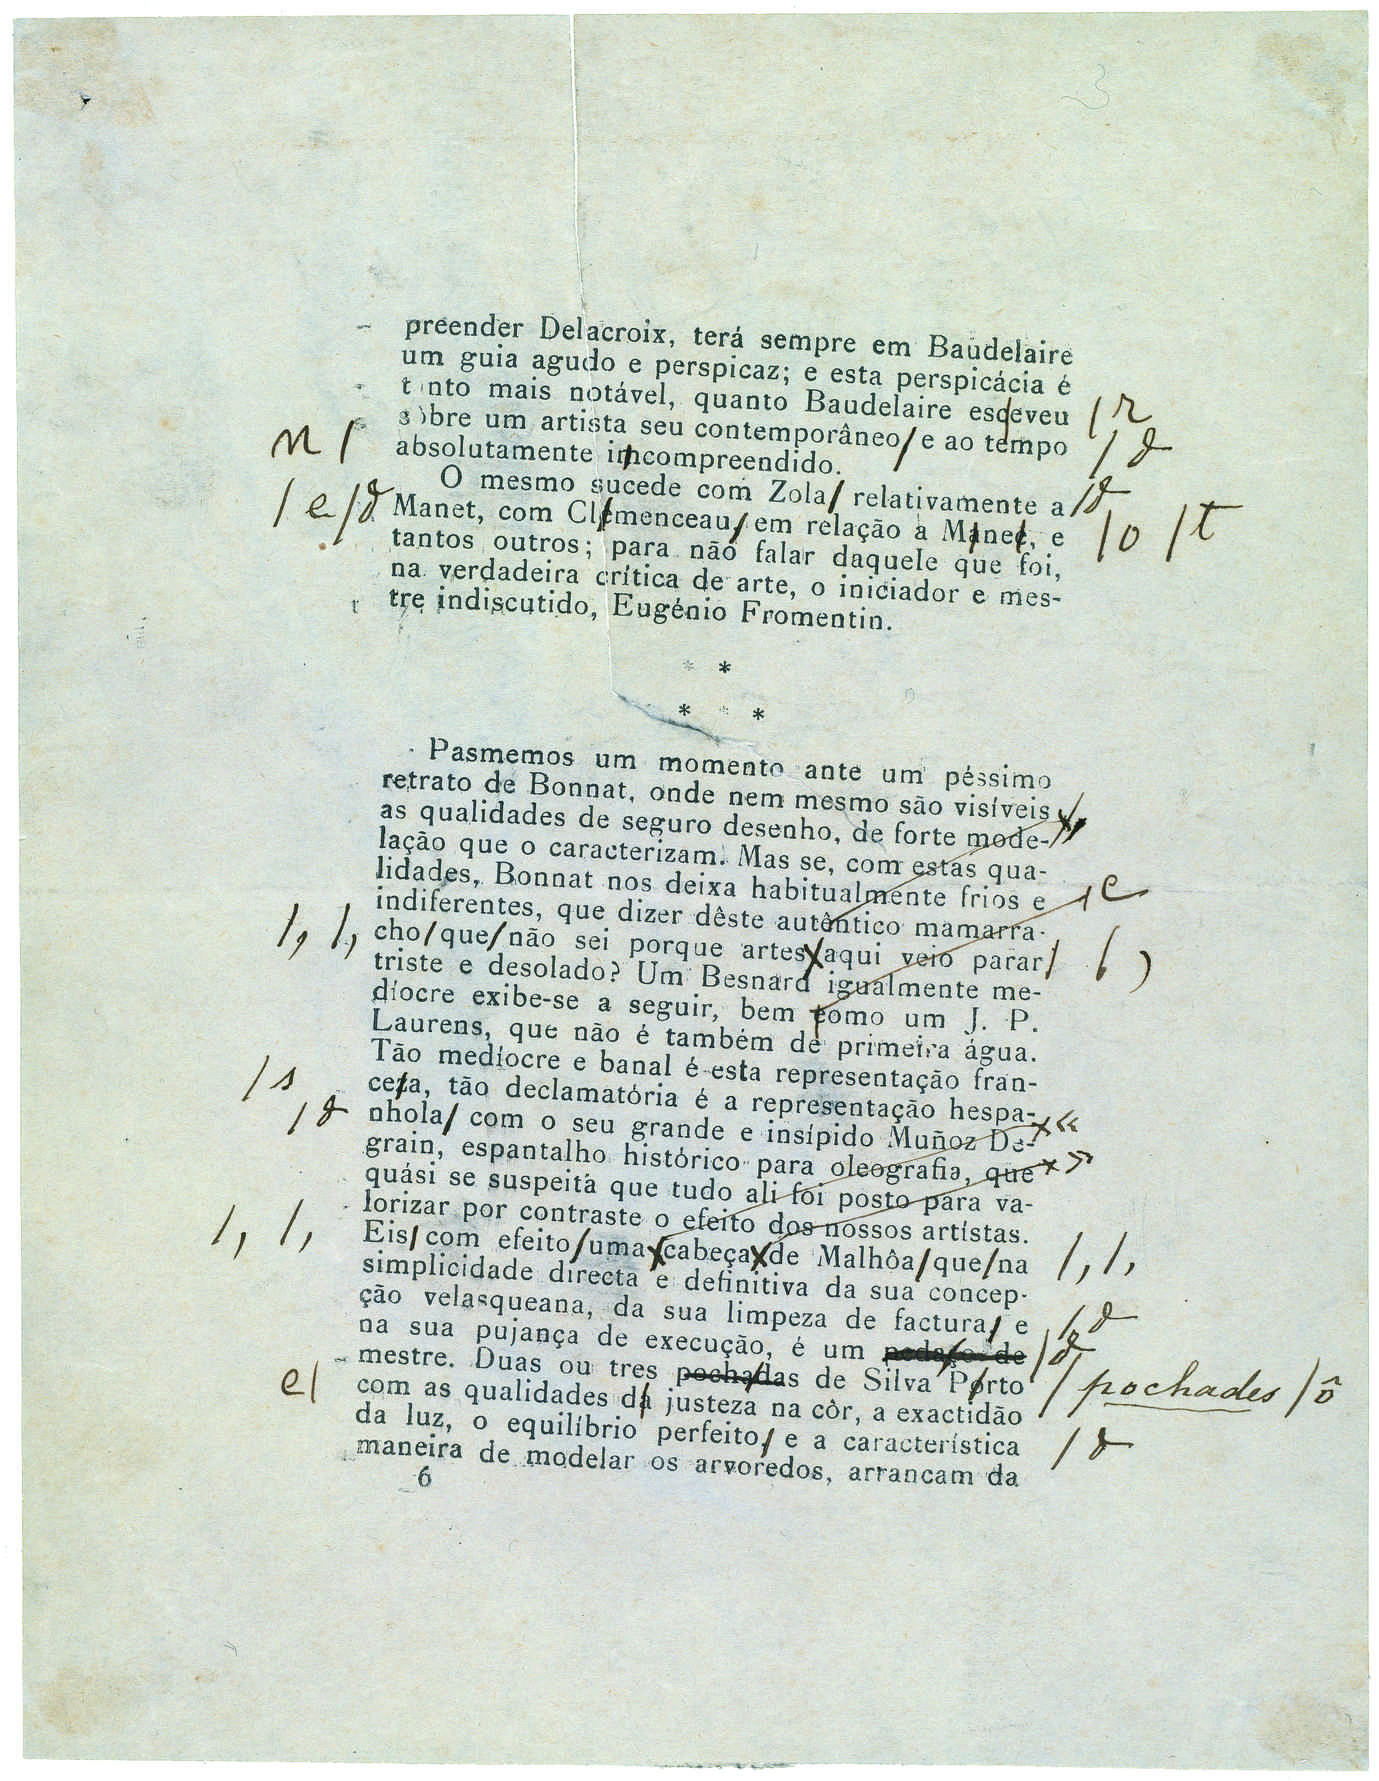 3
preender Delacroix, terá sempre em Baudelaire
um guia agudo e perspicaz; e esta perspicácia é
tanto mais notável, quanto Baudelaire esceveu / r
sôbre um artista seu contemporâneo/ e ao tempo / ꝺ
n / absolutamente imcompreendido.
O mesmo sucede com Zola/ relativamente a / ꝺ
/ e / ꝺ Manet, com Clémenceau, em relação a Manec, e / o / t
tantos outros; para não falar daquele que foi,
na verdadeira crítica de arte, o iniciador e mes-
tre indiscutido, Eugénio Fromentin.
* *
* * *
Pasmemos um momento ante um péssimo
retrato de Bonnat, onde nem mesmo são visíveis
as qualidades de seguro desenho, de forte mode- »
lação que o caracterizam. Mas se, com estas qua-
lidades, Bonnat nos deixa habitualmente frios e / e
indiferentes, que dizer dêste autêntico mamarra-
/, /, cho/que/não sei porque artes aqui veio parar/ / ,
triste e desolado? Um Besnard igualmente me-
díocre exibe-se a seguir, bem como um J. P.
Laurens, que não é também de primeira água.
Tão medíocre e banal é esta representação fran-
/ s ceza, tão declamatória é a representação hespa-
/ ꝺ nhola/ com o seu grande e insípido Muñoz De- «
grain, espantalho histórico para oleografia, que »
quási se suspeita que tudo ali foi posto para va-
lorizar por contraste o efeito dos nossos artístas.
/, /, Eis/com efeito/uma cabeça de Malhôa/que/na /, /,
simplicidade directa e definitiva da sua concep-
ção velasqueana, da sua limpeza de factura, e / ꝺ
na sua pujança de execução, é um pedaço de / ꝺ
mestre. Duas ou tres pochadas de Silva Porto / pochades / ô
e / com as qualidades da justeza na côr, a exactidão
da luz, o equilíbrio perfeito, e a característica / ꝺ
maneira de modelar os arvoredos, arrancam da
6